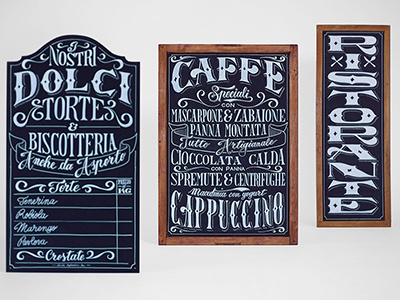 I
NOSTRI
DOLCI
TORTE
&
BISCOTTERIA
Anche da Asporto
Torte
PREZZO
KG
Tenerina
Robiola
Marengo
Pavlova
Crostate
CAFFÈ
Speciali
CON
MASCARPONE & ZABAIONE
PANNA MONTATA
Tutto Artigianale
CIOCCOLATA CALDA
CON PANNA
SPREMUTE & CENTRIFUGHE
Macedonia con yogurt
CAPPUCCINO
RISTORANTE